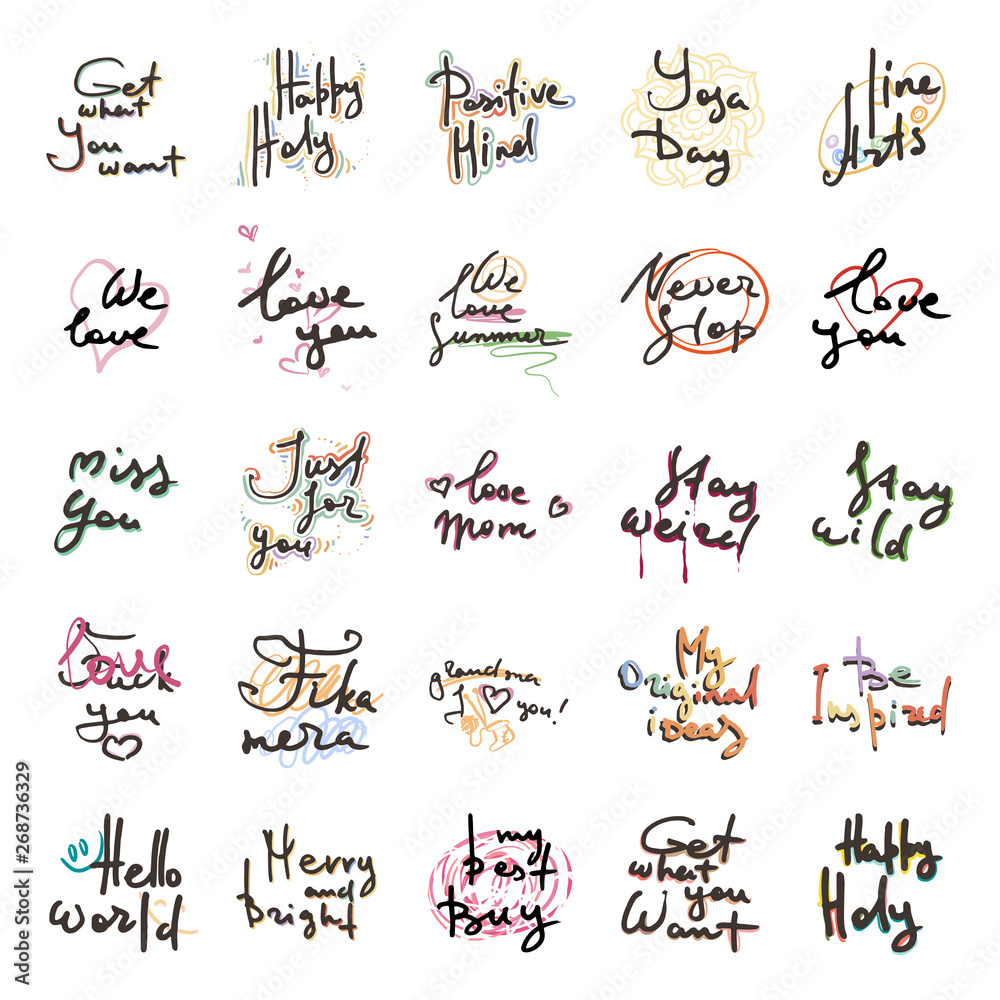 Get
what
You
want
Happy
Holy
Positive
Mind
Yoga
Day
Fine
Arts
We
love
love
you
We
love
Summer
Never
Stop
love
you
Miss
You
Just
for
you
love
Mom
Stay
weird
Stay
wild
Love
you
Fika
mera
grandma
I you!
My
Original
ideas
Be
Inspired
Hello
world
Merry
and
Bright
my
best
Buy
Get
what
you
Want
Happy
Holy
Adobe Stock | #268736329